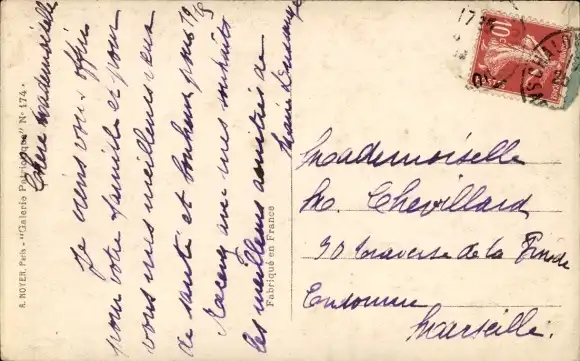 Chère Mademoiselle
Je viens vous offrir
pour votre famille et pour
vous mes meilleurs vœux
de santé et bonheur pour 19
Recevez avec mes souhaits
les meilleurs amitiés de
Marie
A. NOYER, Paris - "Galerie Patriotique" N° 174
Fabriqué en France
10
Mademoiselle
M. Chevillard
90 traverse de la
Marseille.